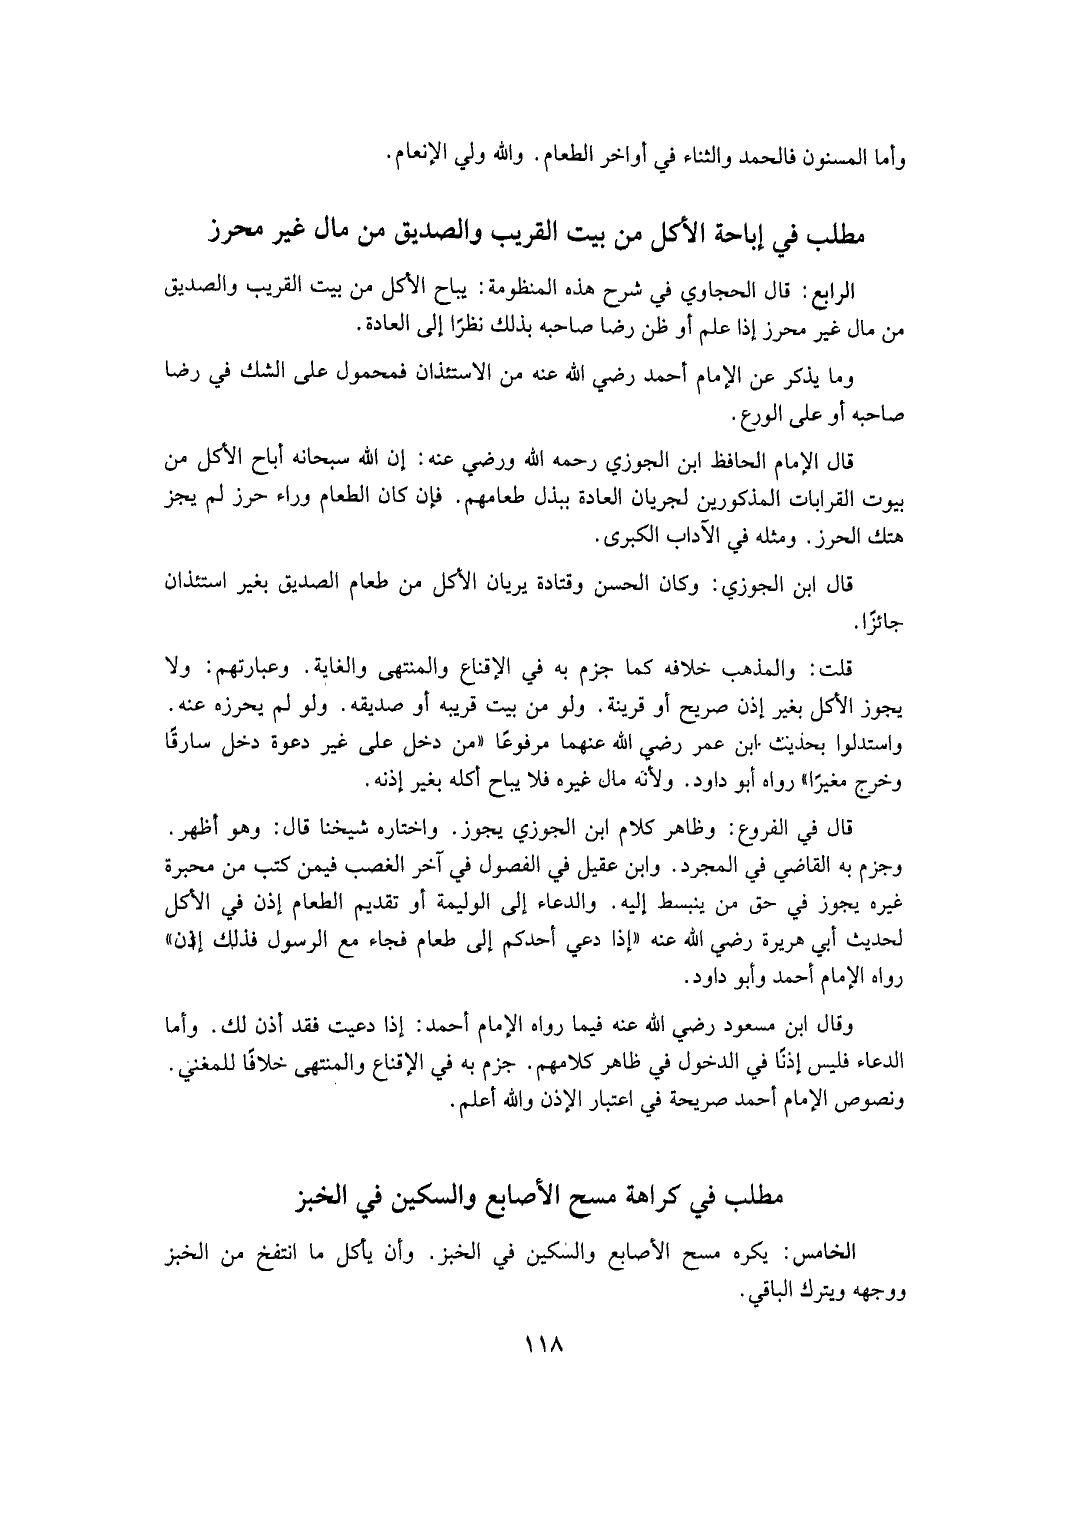 وأما المسنون فالحمد والثناء في أواخر الطعام. والله ولي الإنعام.
مطلب في إباحة الأكل من بيت القريب والصديق من مال غير محرز
الرابع: قال الحجاوي في شرح هذه المنظومة: يباح الأكل من بيت القريب والصديق
من مال غير محرز إذا علم أو ظن رضا صاحبه بذلك نظرًا إلى العادة.
وما يذكر عن الإمام أحمد رضي الله عنه من الاستئذان فمحمول على الشك في رضا
صاحبه أو على الورع.
قال الإمام الحافظ ابن الجوزي رحمه الله ورضي عنه: إن الله سبحانه أباح الأكل من
بيوت القرابات المذكورين لجريان العادة ببذل طعامهم. فإن كان الطعام وراء حرز لم يجز
هتك الحرز. ومثله في الآداب الكبرى.
قال ابن الجوزي: وكان الحسن وقتادة يريان الأكل من طعام الصديق بغير استئذان
جائزًا.
قلت: والمذهب خلافه كما جزم به في الإقناع والمنتهى والغاية. وعبارتهم: ولا
يجوز الأكل بغير إذن صريح أو قرينة. ولو من بيت قريبه أو صديقه. ولو لم يحرزه عنه.
واستدلوا بحديث ابن عمر رضي الله عنهما مرفوعًا «من دخل على غير دعوة دخل سارقًا
وخرج مغيرًا» رواه أبو داود. ولأنه مال غيره فلا يباح أكله بغير إذنه.
قال في الفروع: وظاهر كلام ابن الجوزي يجوز. واختاره شيخنا قال: وهو أظهر.
وجزم به القاضي في المجرد. وابن عقيل في الفصول في آخر الغصب فيمن كتب من محبرة
غيره يجوز في حق من ينبسط إليه. والدعاء إلى الوليمة أو تقديم الطعام إذن في الأكل
لحديث أبي هريرة رضي الله عنه «إذا دعي أحدكم إلى طعام فجاء مع الرسول فذلك إذن»
رواه الإمام أحمد وأبو داود.
وقال ابن مسعود رضي الله عنه فيما رواه الإمام أحمد: إذا دعيت فقد أذن لك. وأما
الدعاء فليس إذنًا في الدخول في ظاهر كلامهم. جزم به في الإقناع والمنتهى خلافًا للمغني.
ونصوص الإمام أحمد صريحة في اعتبار الإذن والله أعلم.
مطلب في كراهة مسح الأصابع والسكين في الخبز
الخامس: يكره مسح الأصابع والسكين في الخبز. وأن يأكل ما انتفخ من الخبز
ووجهه ويترك الباقي.
١١٨